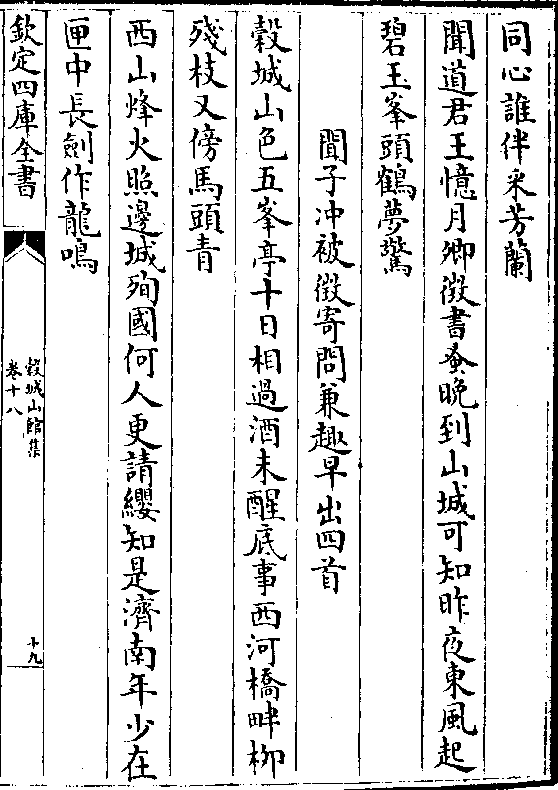 同心誰伴采芳蘭
聞道君王憶月卿徴書蚤晚到山城可知昨夜東風起
碧玉峯頭鶴夢驚
聞子冲被徴寄問兼趣早出四首
穀城山色五峯亭十日相過酒未醒底事西河橋畔栁
殘枝又傍馬頭青
西山烽火照邊城殉國何人更請纓知是濟南年少在
匣中長劍作龍鳴
欽定四庫全書
穀城山館集
卷十八
十九